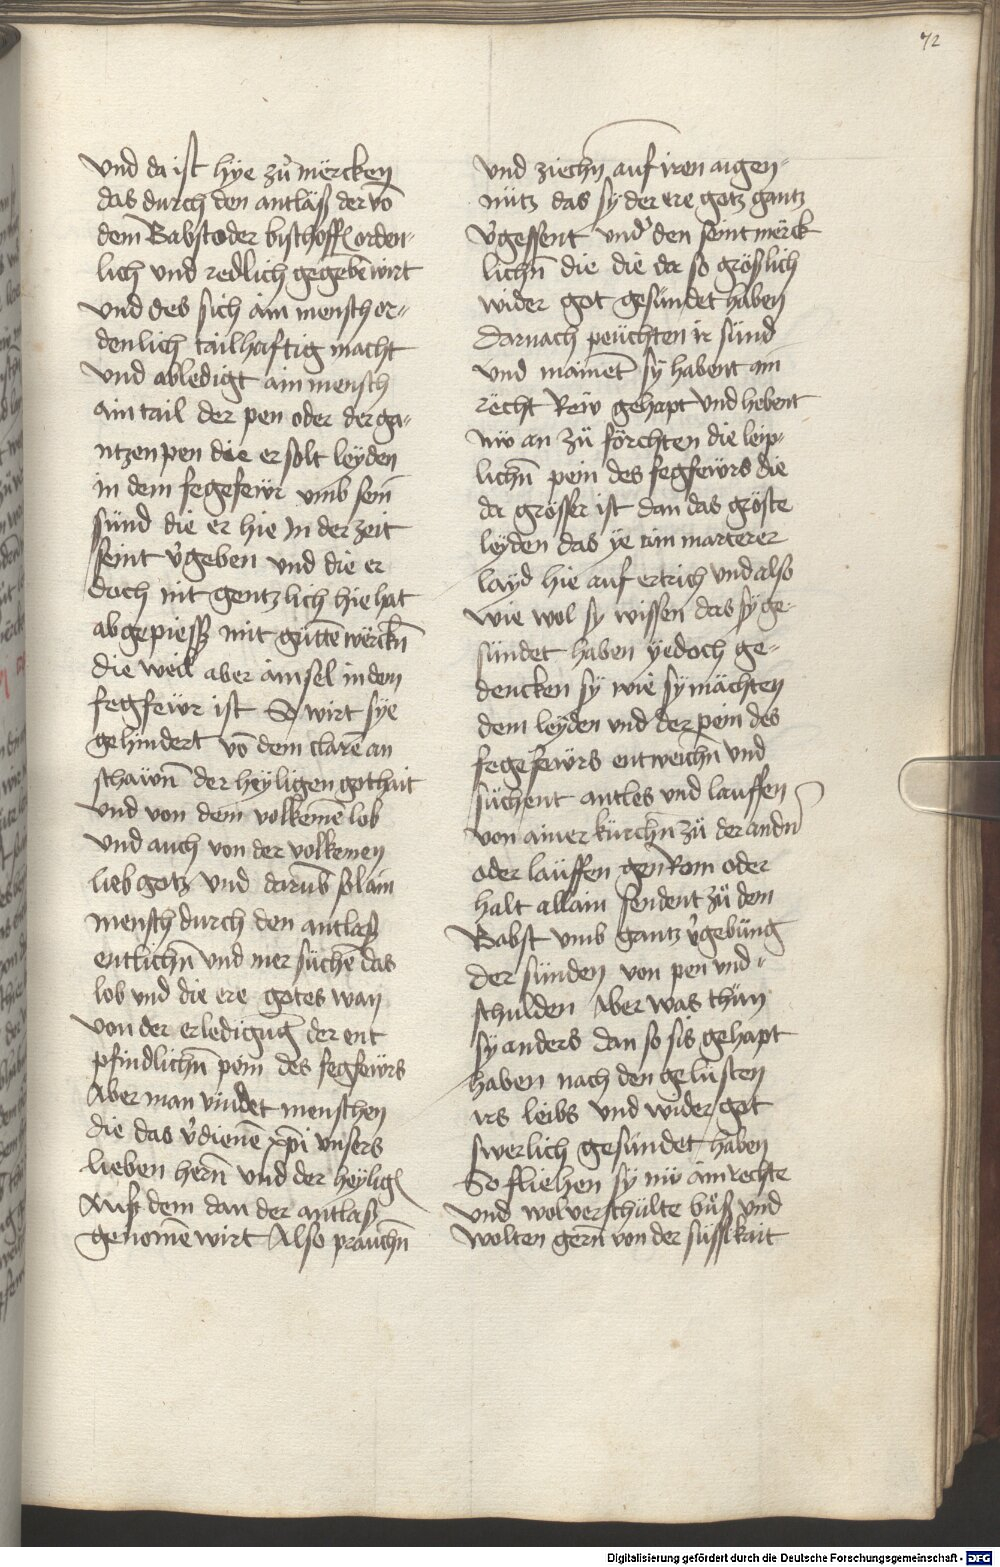 72
und da ist hÿe zů mërcken
das durch den antläß der võ
dem Babst oder bischoff orden-
lich und redlich gegebẽ wirt
und des sich ain mensch or-
denlich tailhaftig macht
und abledigt ain mensch
ain tail der pen oder der ga-
ntzen pen die er solt leÿden
in dem fegefeẅr umb sein
sünd die er hie in der zeit
seint v̾geben und die er
doch nit gentzlich hie hat
abgepiesß mit gůttẽ wërckñ
die weil aber ain sel in dem
fegfeẅr ist So wirt sÿe
gehindert võ dem clarẽ an
schaẅñ der heÿligen gothait
und von dem volkemẽ lob
und auch von der volkemen
lieb gotz und darũb sol ain
mensch durch den antlaß
entlichñ und mer süchẽ das
lob und die ere gotes wan
von der erledigũg der ent
pfindlichñ pein des fegfeẅrs
Aber man vindet menschen
die das v̾dienẽ xp̃i unsers
lieben herñ und der heÿligẽ
Auß dem dan der antlaß
genomẽ wirt Also prauchñ
und ziechñ auf iren aigen-
nütz das sÿ der ere gotz gantz
v̾gessent und den seint mërck
lichñ die die da so größlich
wider got gesündet haben
darnach peüchten ir sünd
und mainẽt sÿ habent ain
rëcht Reẅ gehapt und hebent
nẅ an zů förchten die leip-
lichñ pein des fegfeẅrs die
da grösser ist dan das gröste
leÿden das ÿe ain marterer
laÿd hie auf ertrich und also
wie wol sy wissen das sÿ ge-
sündet haben ÿedoch ge-
dencken sÿ wie sÿ mächten
dem leÿden und der pein des
fegefeẅrs entweichñ und
süchent antles und lauffen
von ainer kürchñ zů der andñ
oder läuffen gen Rom oder
halt allain sendent zů dem
Babst umb gantz v̾gebüng
der sünden von pen und
schulden Aber was thün
sÿ anders dan so sis gehapt
haben nach den gelüsten
irs leibs und wider got
swerlich gesündet haben
So fliehen sÿ nẅ ain rechte
und wolverschülte bůß und
wolten gerñ von der süssikait
Digitalisierung gefördert durch die Deutsche Forschungsgemeinschaft - DFG